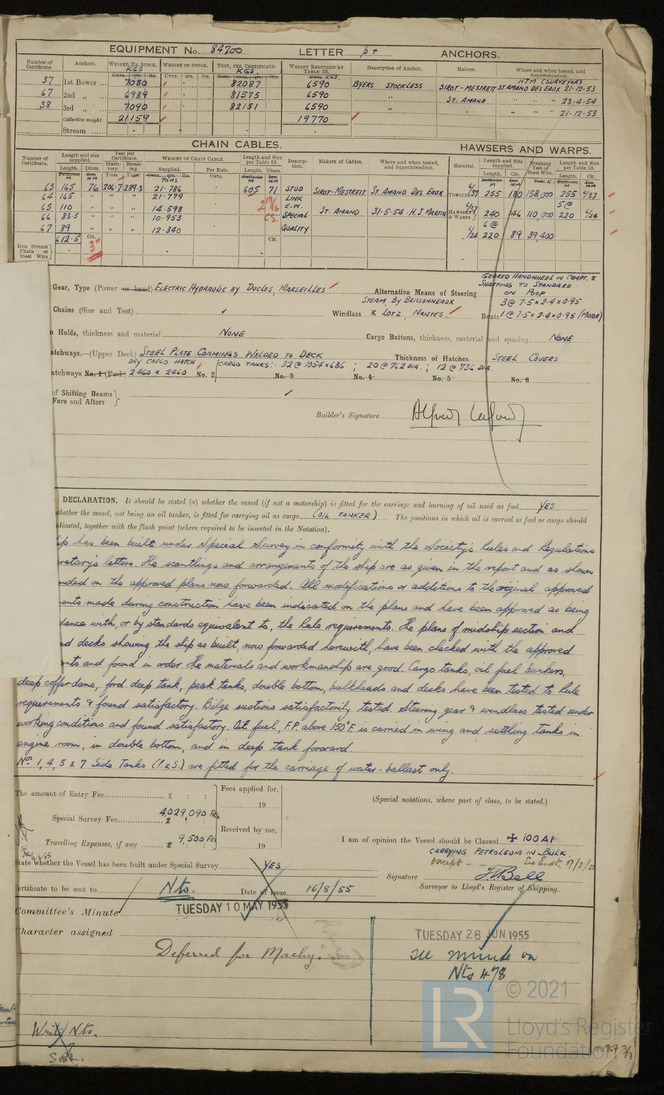 EQUIPMENT No. 84700 LETTER p+ ANCHORS.
Number of Certificate. Anchors. WEIGHT, EX. STOCK KGS. WEIGHT OF STOCK. TEST, PER CERTIFICATE. KGS. WEIGHT REQUIRED BY TABLE 53. Description of Anchor. Makers. Where and when tested, and Superintendent.
37 1st Bower 7080 82087 6590 BYERS STOCKLESS SIROT-MESTREIT ST. AMAND DES EAUX 21-12-53
HJM (SURVEYOR)
67 2nd „ 6989 81575 6590 „ ST. AMAND „ 23-4-54
38 3rd „ 7090 82151 6590 „ 21-12-53
Collective weight 21159 19770
Stream
CHAIN CABLES. HAWSERS AND WARPS.
Number of Certificate. Length and size supplied. Test per Certificate. WEIGHT OF CHAIN CABLE. Length and Size per Table 53. Description. Makers of Cables. Where and when tested, and Superintendent. Material. Length and Size supplied. Breaking Test of Steel Wire. Length and Size per Table 53.
Length. Diam. Supplied. Per Rule. Length. Diam.
TONS
63 165 76 206.7 289.3 21.786 605 71 STUD SIROT-MESTREIT ST. AMAND DES EAUX 255 180 158,000 255
64 165 „ „ „ 21.779 LINK
65 110 „ „ „ 14.598 E.M. ST. AMAND 31-5-54 H.J. MARTIN HAWSERS & WARPS 240 146 110,000 220
66 83.5 „ „ „ 10.953 SPECIAL
67 89 „ „ „ 12.340 QUALITY 220 89 39,400
612.5
Iron Stream Chain or Steel Wire
Gear, Type (Power or hand) ELECTRIC HYDRAULIC BY DUCLOS, MARSEILLES Alternative Means of Steering GEARED HANDWHEEL IN COMPT. & SHAFTING TO STANDARD ON POOP
Chains (Size and Test) Windlass STEAM BY BRISSONNEAUX & LOTZ, NANTES. Boats 3 @ 7.5 x 2.4 x 0.95
1 @ 7.5 x 2.4 x 0.95 (MOTOR)
Holds, thickness and material NONE Cargo Battens, thickness, material and spacing NONE
atchways.—(Upper Deck) STEEL PLATE COAMINGS WELDED TO DECK Thickness of Hatches STEEL COVERS
DRY CARGO HATCH CARGO TANKS: 32 @ 1054 x 686 ; 20 @ 762 DIA ; 12 @ 736 DIA
atchways No. 1 (Fwd) 2460 x 2460 No. 2 No. 3 No. 4 No. 5 No. 6
of Shifting Beams
Fore and Afters
Builder's Signature
DECLARATION. It should be stated (a) whether the vessel (if not a motorship) is fitted for the carriage and burning of oil used as fuel YES
whether the vessel, not being an oil tanker, is fitted for carrying oil as cargo (OIL TANKER) The positions in which oil is carried as fuel or cargo should
ndicated, together with the flash point (where required to be inserted in the Notation).
ip has been built under Special Survey in conformity with the Society's Rules and Regulations
retary's letters. The scantlings and arrangements of the ship are as given in the report and as shown
nded on the approved plans now forwarded. All modifications or additions to the original approved
nts made during construction have been indicated on the plans and have been approved as being
dance with, or by standards equivalent to, the Rule requirements. The plans of midship section and
nd decks showing the ship as built, now forwarded herewith, have been checked with the approved
nts and found in order. The materials and workmanship are good. Cargo tanks, oil fuel bunkers,
deep cofferdams, ford deep tank, peak tanks, double bottom, bulkheads and decks have been tested to Rule
requirements & found satisfactory. Bilge suctions satisfactorily tested. Steering gear & windlass tested under
working conditions and found satisfactory. Oil fuel, F.P. above 150°F is carried in wing and settling tanks in
engine room, in double bottom, and in deep tank forward.
Nos 1, 4, 5 & 7 Side Tanks (P. & S.) are fitted for the carriage of water-ballast only.
The amount of Entry Fee £ : : Fees applied for, 19
Special Survey Fee £ 4,029,090 Frs
Received by me, 19
Travelling Expenses, if any £ 9,500 Frs
(Special notations, where part of class, to be stated.)
I am of opinion the Vessel should be Classed ✠ 100A1
CARRYING PETROLEUM IN BULK
State whether the Vessel has been built under Special Survey YES
Signature J. Bell
Surveyor to Lloyd's Register of Shipping.
Certificate to be sent to Nts. Date of issue 10/5/55
Committee's Minute TUESDAY 10 MAY 1955
Character assigned Deferred for Machy.
TUESDAY 28 JUN 1955
see minute on
Nts 478
Write Nts.
LR
© 2021
Lloyd's Register
Foundation